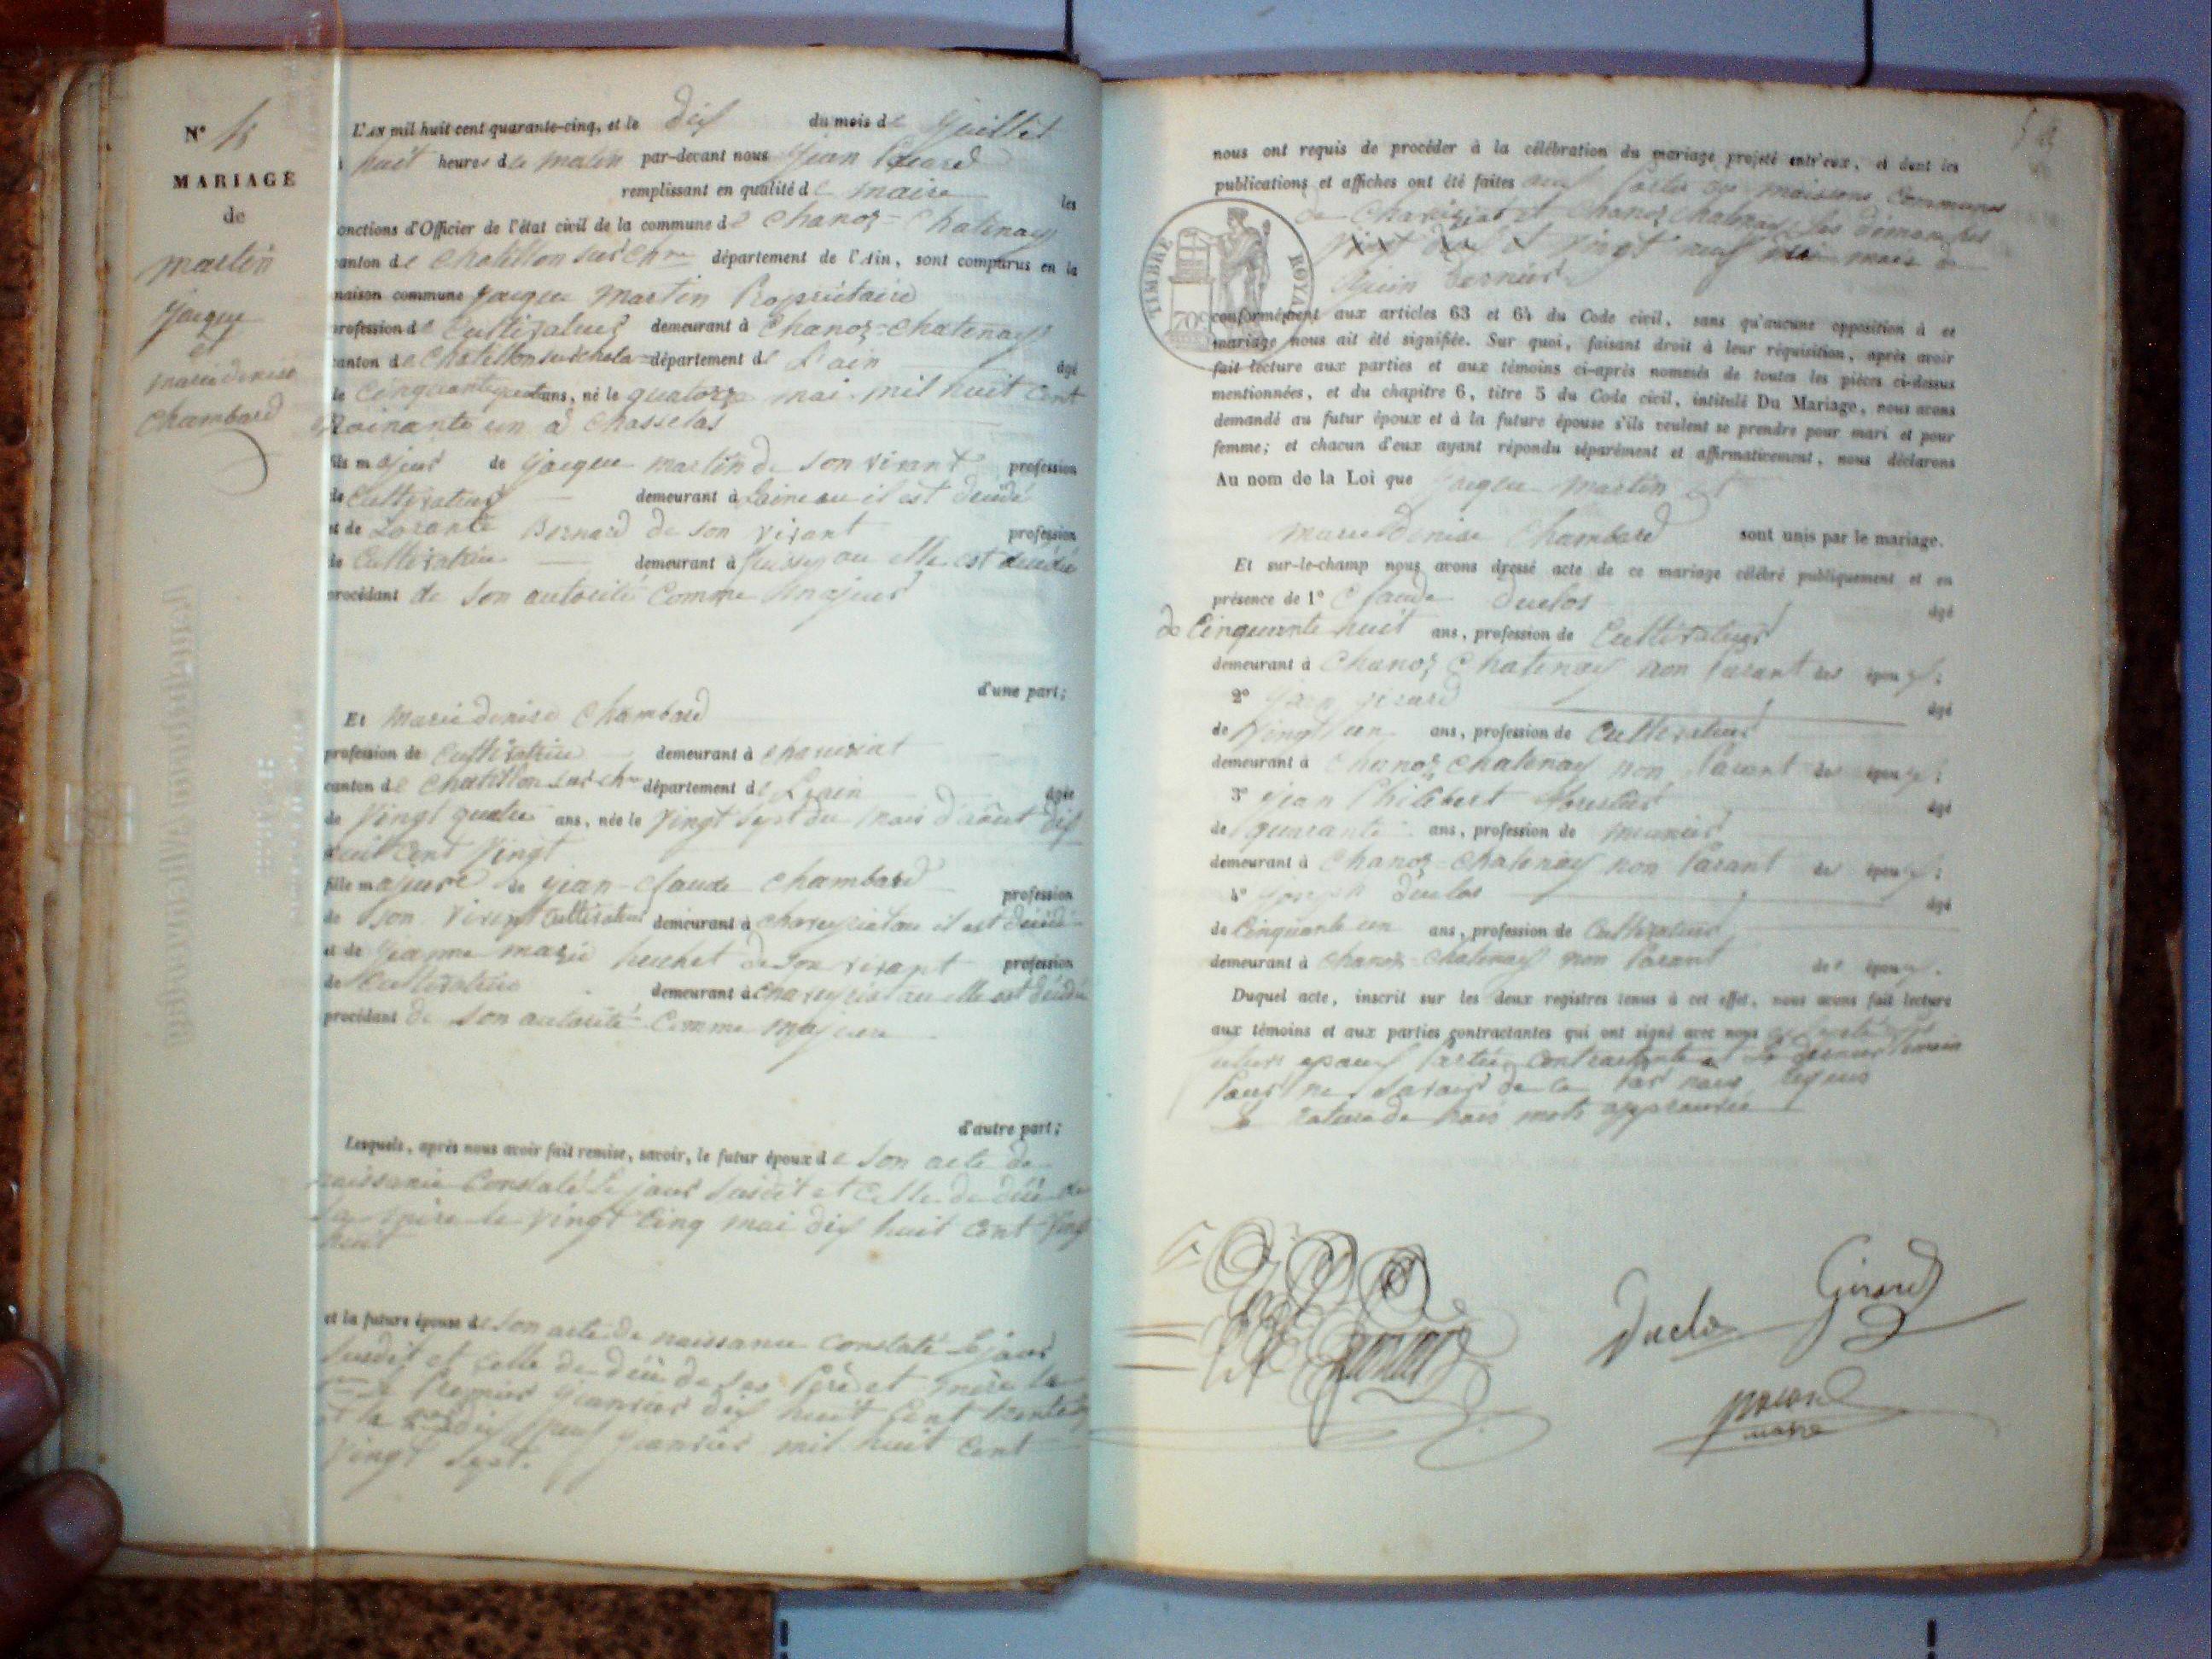 N°
MARIAGE
de
martin
jacque
et
marie denise
chambard
L'AN mil huit cent quarante-cinq, et le dix du mois de juillet
huit heures du matin par-devant nous jean
remplissant en qualité de maire les
fonctions d'Officier de l'état civil de la commune de chanoz-chatenay
canton de chatillon sur ch.ne département de l'Ain, sont comparus en la
maison commune jacque martin Propriétaire
profession de cultivateur demeurant à chanoz-chatenay
canton de chatillon sur chala département de L'ain âgé
de ans, né le quatorze mai mil huit cent
un à chasselas
fils majeur de jacque martin de son vivant profession
de cultivateur demeurant à où il est
et de Bernard de son vivant profession
de cultivatrice demeurant à ou elle est
procédant de son autorité comme majeur
d'une part;
Et marie denise chambard
profession de cultivatrice demeurant à
canton de chatillon sur ch.ne département de L'ain âgée
de vingt quatre ans, née le vingt sept du mois d'août dix
huit cent vingt
fille majeure de jean-claude chambard profession
de son vivant cultivateur demeurant à ou il est
et de jeanne marie de son vivant profession
de cultivatrice demeurant à ou elle est
procédant de son autorité comme majeure
d'autre part;
Lesquels, après nous avoir fait remise, savoir, le futur époux de son acte de
naissance constaté le jour susdit et celle de
le vingt cinq mai dix huit cent vingt
huit
et la future épouse de son acte de naissance constaté le jour
susdit et celle de de ses père et mère
le premier janvier dix huit cent
et la dix neuf janvier mil huit cent
vingt sept.
nous ont requis de procéder à la célébration du mariage projeté entr'eux, et dont les
publications et affiches ont été faites aux portes des maisons communes
de et chanoz chatenay les dimanches
vingt deux et vingt neuf mois de
juin dernier
TIMBRE ROYAL
70c
conformément aux articles 63 et 64 du Code civil, sans qu'aucune opposition à ce
mariage nous ait été signifiée. Sur quoi, faisant droit à leur réquisition, après avoir
fait lecture aux parties et aux témoins ci-après nommés de toutes les pièces ci-dessus
mentionnées, et du chapitre 6, titre 5 du Code civil, intitulé Du Mariage, nous avons
demandé au futur époux et à la future épouse s'ils veulent se prendre pour mari et pour
femme; et chacun d'eux ayant répondu séparément et affirmativement, nous déclarons
Au nom de la Loi que jacque martin et
marie denise chambard sont unis par le mariage.
Et sur-le-champ nous avons dressé acte de ce mariage célébré publiquement et en
présence de 1° claude duclos âgé
de cinquante huit ans, profession de cultivateur
demeurant à chanoz chatenay non parant des époux;
2° girard âgé
de vingt un ans, profession de cultivateur
demeurant à chanoz chatenay non parant des époux;
3° jean Philibert âgé
de quarante ans, profession de meunier
demeurant à chanoz-chatenay non parant des époux;
4° joseph duclos âgé
de cinquante un ans, profession de cultivateur
demeurant à chanoz-chatenay non parant des époux.
Duquel acte, inscrit sur les deux registres tenus à cet effet, nous avons fait lecture
aux témoins et aux parties contractantes qui ont signé avec nous
époux partie contractante et le dernier temoin
pour ne savoir de ce par nous requis
rature de trois mots approuvée
Duclos
Girard
maire